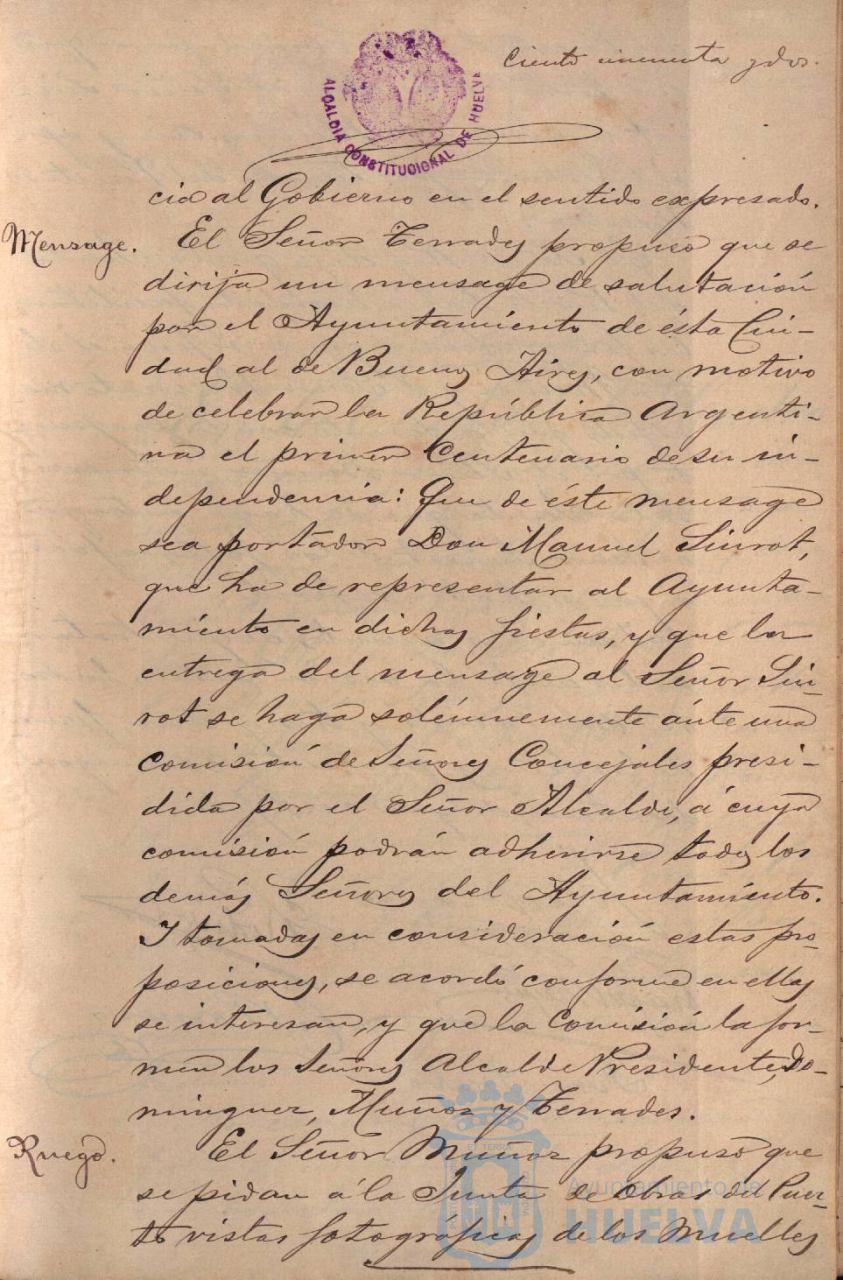 Ciento cincuenta y dos.
ALCALDIA CONSTITUCIONAL DE HUELVA
cia al Gobierno en el sentido expresado.
Mensage.
El Señor Terrades propuso que se
dirija un mensage de salutación
por el Ayuntamiento de ésta Ciu-
dad al de Buenos Aires, con motivo
de celebrar la República Argenti-
na el primer Centenario de su in-
dependencia: Que de éste mensage
sea portador Don Manuel Siurot,
que ha de representar al Ayunta-
miento en dichas fiestas, y que la
entrega del mensage al Señor Siu-
rot se haga solémnemente ánte una
comisión de Señores Concejales presi-
dida por el Señor Alcalde, á cuya
comisión podrán adherirse todos los
demás Señores del Ayuntamiento.
Y tomadas en consideración estas pro-
posiciones, se acordó conforme en ellas
se interesan, y que la Comisión la for-
men los Señores Alcalde Presidente, Do-
minguez, Muñoz y Terrades.
Ruego.
El Señor Muñoz propuso que
se pidan á la Junta de Obras del Puer-
to vistas fotográficas de los Muelles
Ayuntamiento de
HUELVA